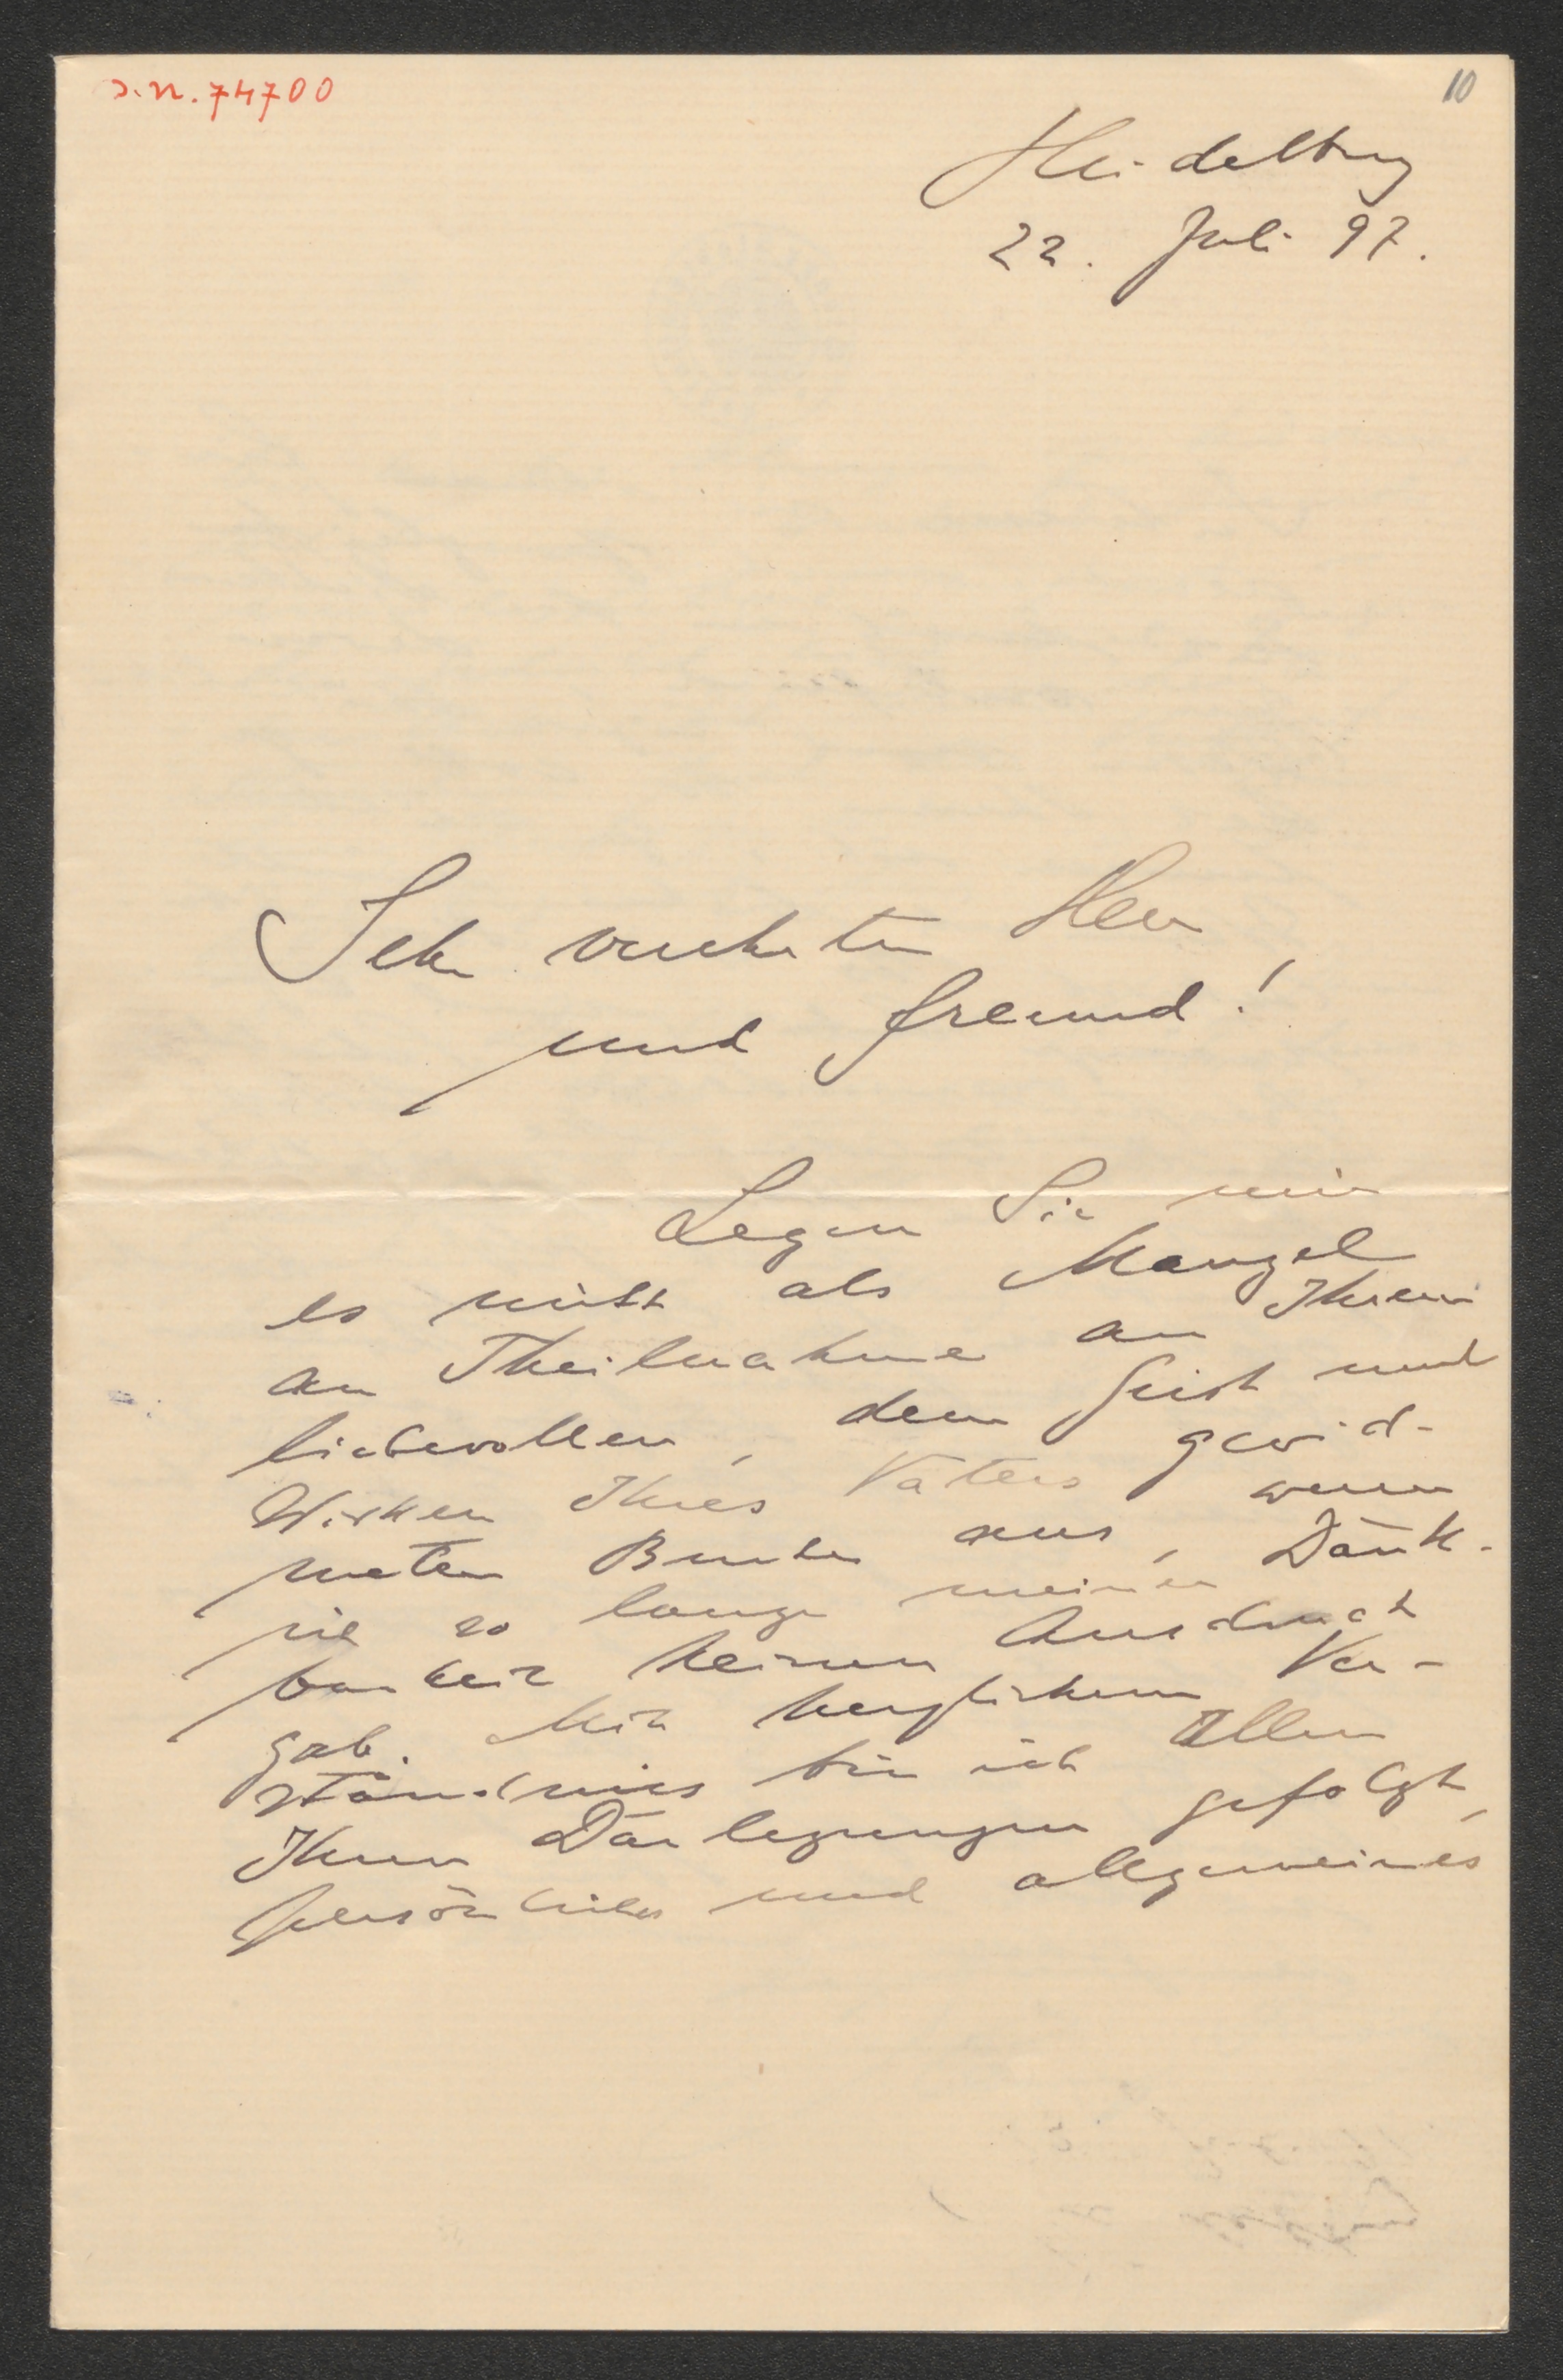 J.N. 74700
10
Heidelberg
22. Juli 97.
Sehr verehrter Herr
und Freund!
Legen Sie mir
es nicht als Mangel
an Theilnahme an Ihrem
liebevollen, dem Geist und
Wirken Ihres Vaters gewid-
meten Buche aus, wenn
ich so lange meiner Dank-
barkeit keinen Ausdruck
gab. Mit herzlichem Ver-
ständniss bin ich allen
Ihren Darlegungen gefolgt,
persönliches und allgemeines